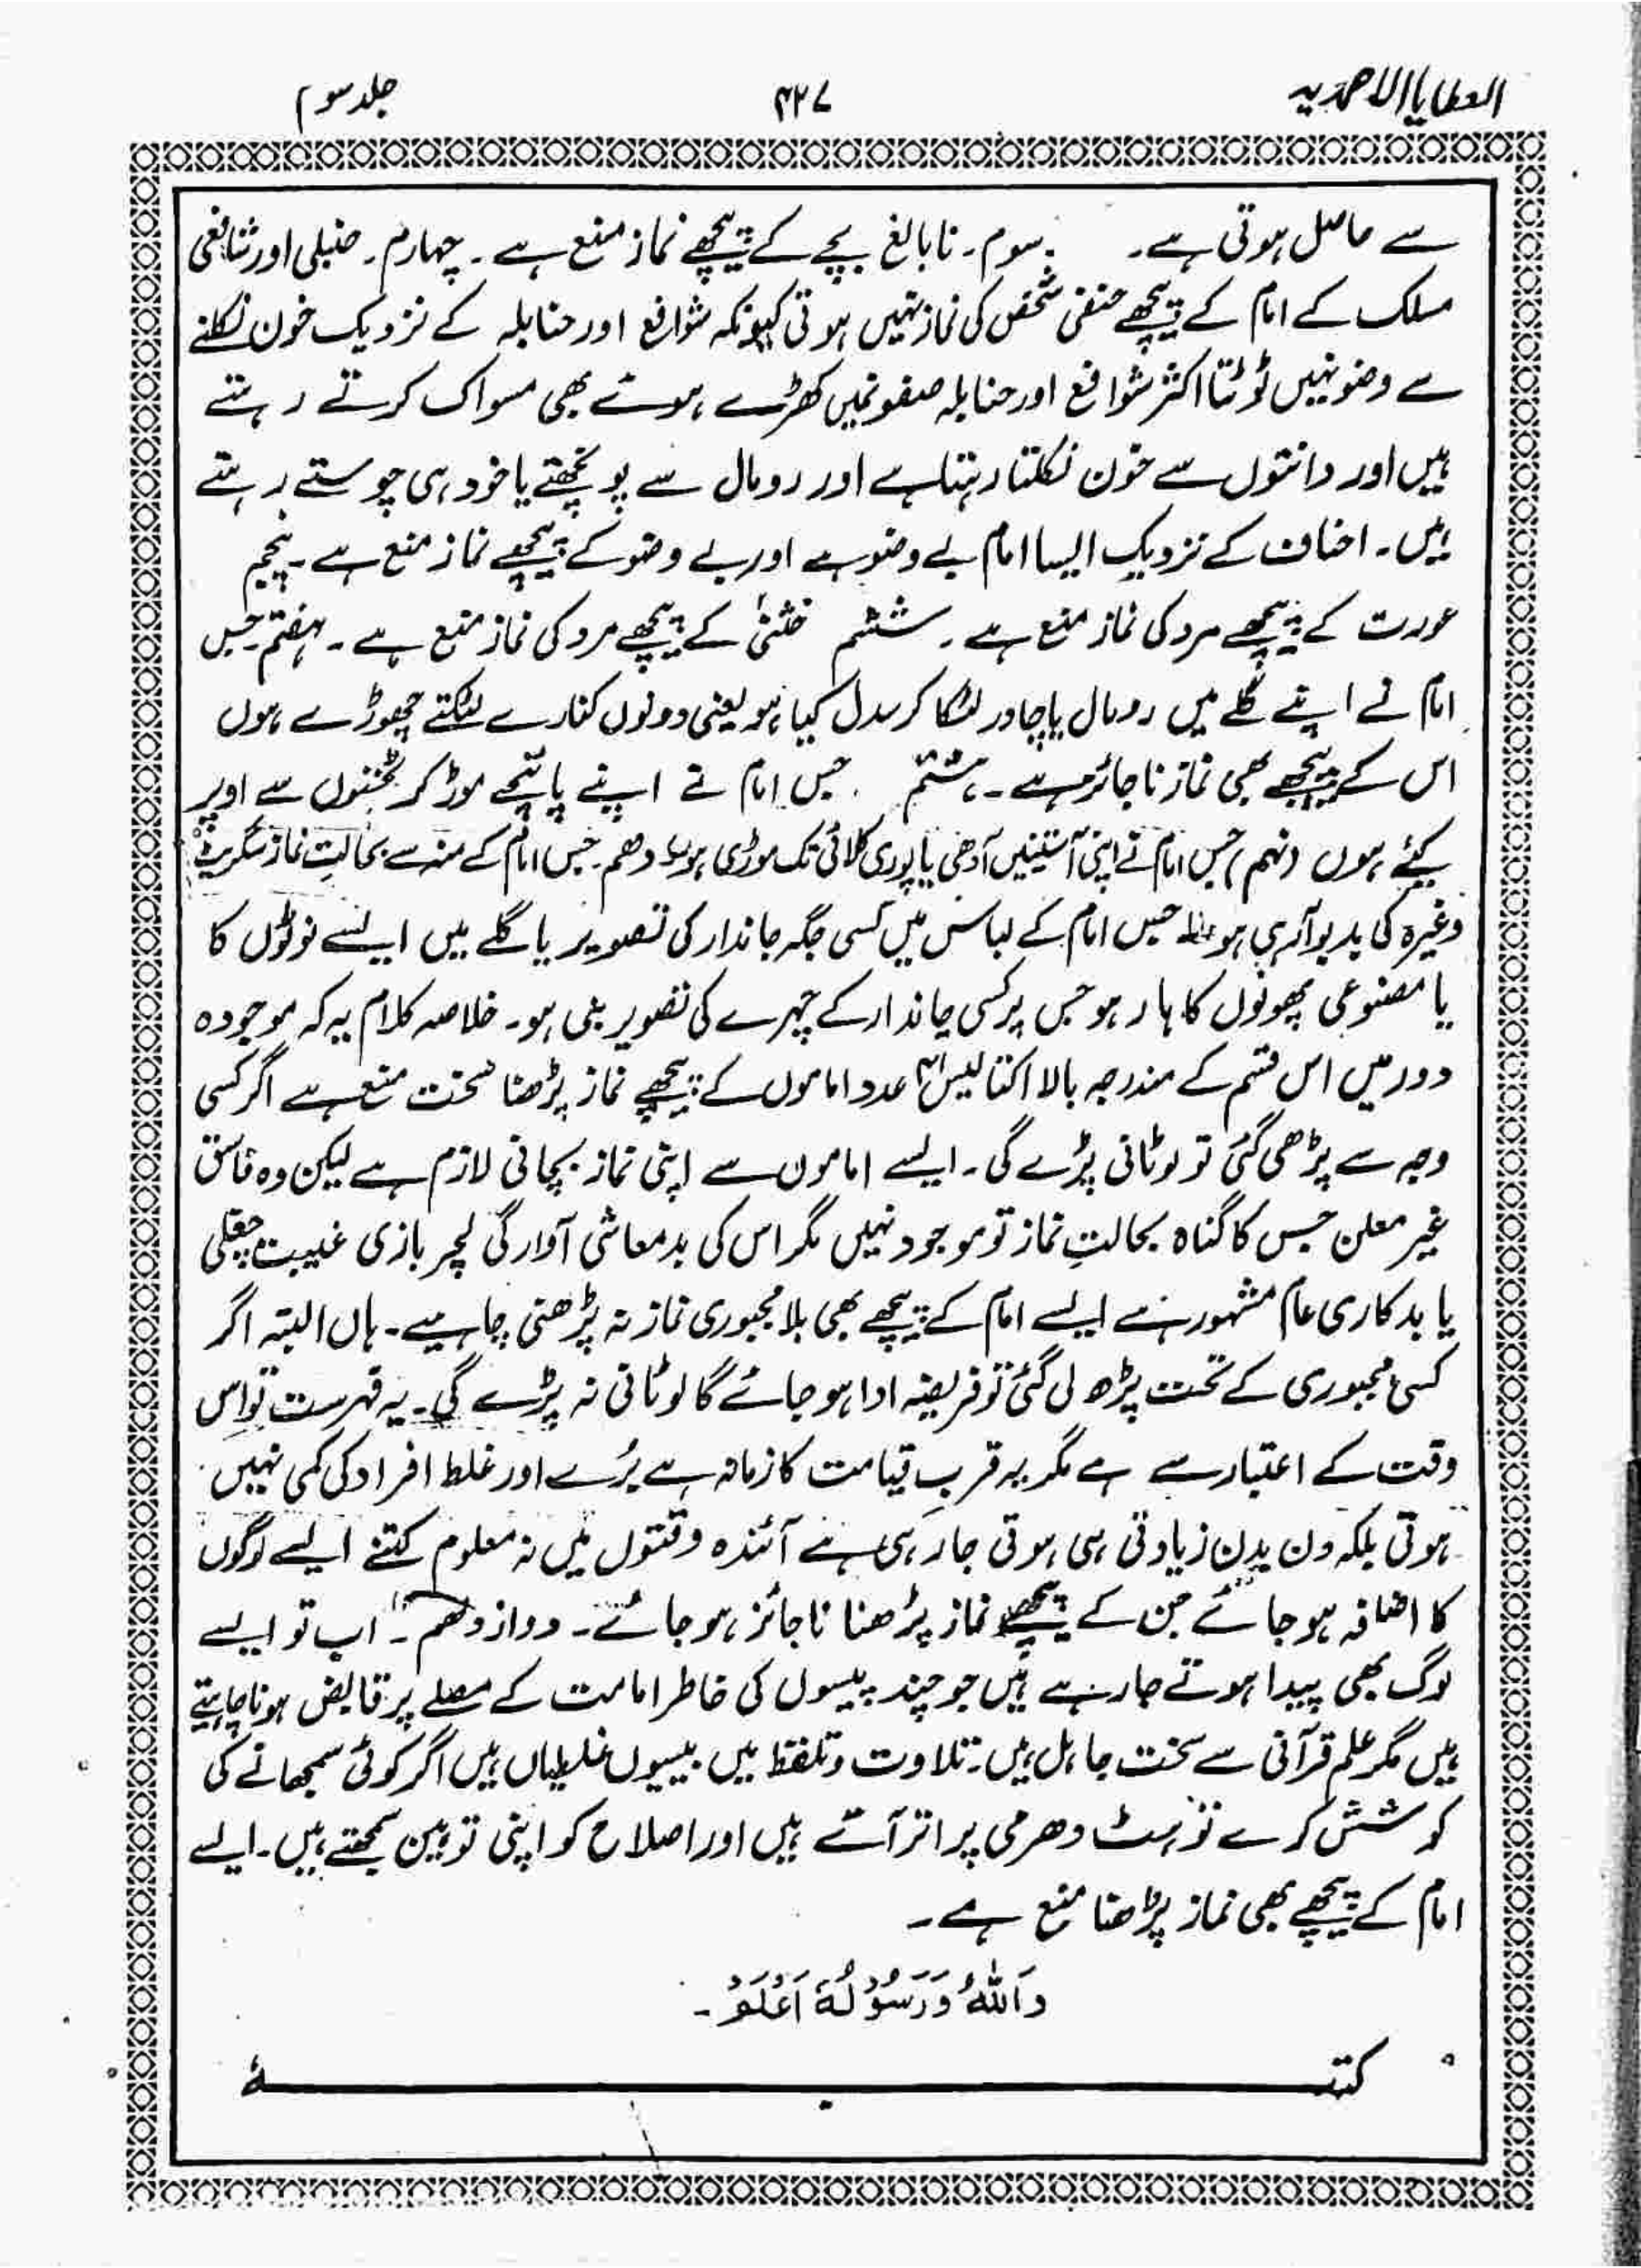 العطایا الاحمدیہ ۴۲۷ جلد سوم
سے حاصل ہوتی ہے۔ سوم۔ نابالغ بچے کے پیچھے نماز منع ہے۔ چہارم۔ حنبلی اور شافعی
مسلک کے امام کے پیچھے حنفی شخص کی نماز نہیں ہوتی کیونکہ شوافع اور حنابلہ کے نزدیک خون نکلنے
سے وضو نہیں ٹوٹتا اکثر شوافع اور حنابلہ صفونمیں کھڑے ہوئے بھی مسواک کرتے رہتے
ہیں اور دانتوں سے خون نکلتا رہتا ہے اور رومال سے پونچھتے یا خود ہی چوستے رہتے
ہیں۔ احناف کے نزدیک ایسا امام بے وضو ہے اور بے وضو کے پیچھے نماز منع ہے۔ پنجم
عورت کے پیچھے مرد کی نماز منع ہے۔ ششم خنثیٰ کے پیچھے مرد کی نماز منع ہے۔ ہفتم۔ جس
امام نے اپنے گلے میں رومال یا چادر لٹکا کر سدل کیا ہو یعنی دونوں کنارے لٹکتے چھوڑے ہوں
اس کے پیچھے بھی نماز ناجائز ہے۔ ہشتم جس امام نے اپنے پائنچے موڑ کر ٹخنوں سے اوپر
کیئے ہوں (نہم) جس امام نے اپنی آستینیں آدھی یا پوری کلائی تک موڑی ہو۔ دھم۔ جس امام کے منہ سے بحالتِ نماز سگریٹ
وغیرہ کی بدبو آرہی ہو جس امام کے لباس میں کسی جگہ جاندار کی تصویر یا گلے میں ایسے نوٹوں کا
یا مصنوعی پھولوں کا ہار ہو جس پر کسی جاندار کے چہرے کی تصویر بنی ہو۔ خلاصہ کلام یہ کہ موجودہ
دور میں اس قسم کے مندرجہ بالا اکتالیس۴۱ عدد اماموں کے پیچھے نماز پڑھنا سخت منع ہے اگر کسی
وجہ سے پڑھی گئی تو لوٹانی پڑے گی۔ ایسے اماموں سے اپنی نماز بچانی لازم ہے لیکن وہ فاسق
غیر معلن جس کا گناہ بحالتِ نماز تو موجود نہیں مگر اس کی بدمعاشی آوارگی لچر بازی غیبت چغلی
یا بدکاری عام مشہور ہے ایسے امام کے پیچھے بھی بلا مجبوری نماز نہ پڑھنی چاہیے۔ ہاں البتہ اگر
کسی مجبوری کے تحت پڑھ لی گئی تو فریضہ ادا ہو جائے گا لوٹانی نہ پڑے گی۔ یہ فہرست تو اس
وقت کے اعتبار سے ہے مگر یہ قربِ قیامت کا زمانہ ہے بُرے اور غلط افراد کی کمی نہیں
ہوتی بلکہ دن بدن زیادتی ہی ہوتی جارہی ہے آئندہ وقتوں میں نہ معلوم کتنے ایسے لوگوں
کا اضافہ ہو جائے جن کے پیچھے نماز پڑھنا ناجائز ہو جائے۔ دوازدھم۔ اب تو ایسے
لوگ بھی پیدا ہوتے جارہے ہیں جو چند پیسوں کی خاطر امامت کے مصلے پر قابض ہونا چاہتے
ہیں مگر علم قرآنی سے سخت جاہل ہیں۔ تلاوت و تلفظ میں بیسیوں غلطیاں ہیں اگر کوئی سمجھانے کی
کوشش کرے تو ہٹ دھرمی پر اتر آتے ہیں اور اصلاح کو اپنی توہین سمجھتے ہیں۔ ایسے
امام کے پیچھے بھی نماز پڑھنا منع ہے۔
وَاللّٰہُ وَرَسُوْلُہٗ اَعْلَمُ۔
کتبــــــــــــــہٗ